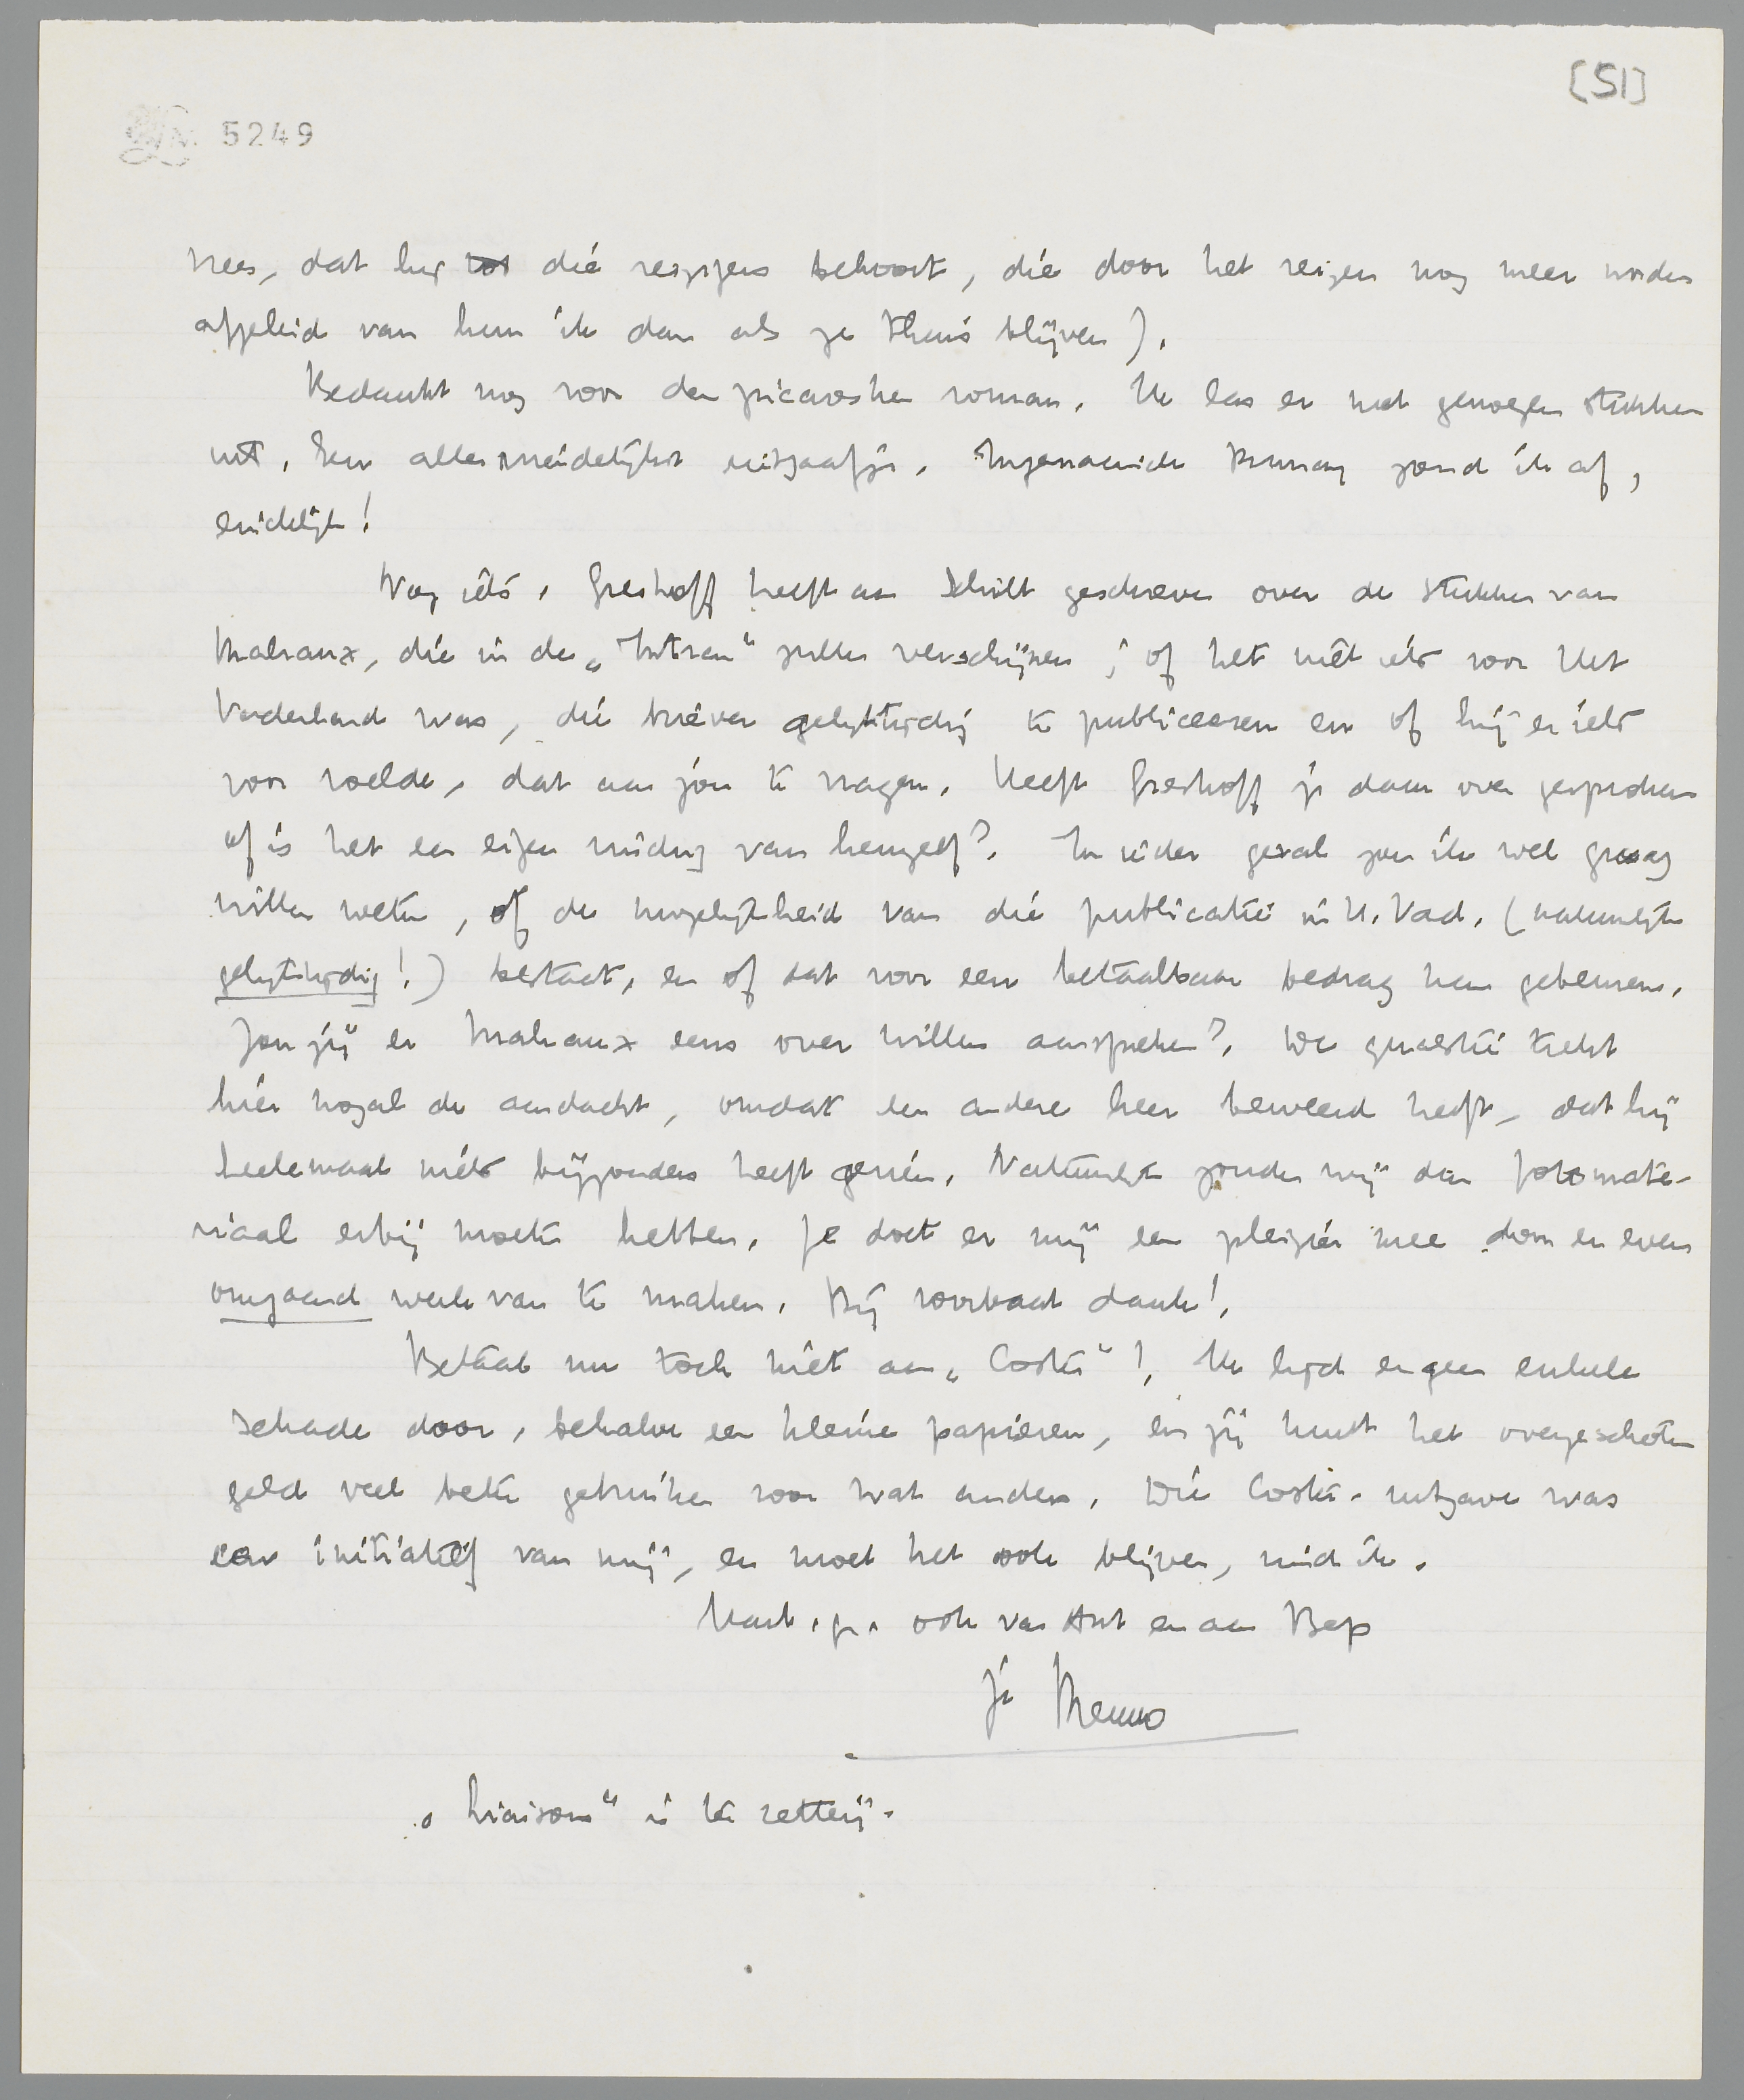 [51]
5249
vrees, dat hij tot die reizigers behoort, die door het reizen nog meer worden
afgeleid van hun ik dan als ze thuis blijven).
Bedankt nog voor den picaresken roman. Ik las er met genoegen stukken
uit. Een allersmeidelijkst uitgaafje. Ingenaaide Penning zond ik af,
eindelijk!
Nog iets. Greshoff heeft aan Schilt geschreven over de stukken van
Malraux, die in de „Intran" zullen verschijnen; of het niet iets voor Het
Vaderland was, die brieven gelijktijdig te publiceeren en of hij er iets
voor voelde, dat aan jou te vragen. Heeft Greshoff je daar over gesproken
of is het een eigen vinding van hemzelf?. In ieder geval zou ik wel graag
willen weten, of de mogelijkheid van die publicatie in H. Vad. (natuurlijk
gelijktijdig!) bestaat, en of dat voor een betaalbaar bedrag kan gebeuren.
Zou jij er Malraux eens over willen aanspreken?. De quaestie trekt
hier nogal de aandacht, omdat een andere heer beweerd heeft, dat hij
heelemaal niets bijzonders heeft gezien. Natuurlijk zouden wij dan fotomate-
riaal erbij moeten hebben. Je doet er mij een plezier mee door er even
omgaand werk van te maken. Bij voorbaat dank!.
Betaal nu toch niet aan „Coster"!. Ik lijd er geen enkele
schade door, behalve een kleine papieren, en jij kunt het overgeschoten
geld veel beter gebruiken voor wat anders. Die Coster-uitgave was
een initiatief van mij, en moet het ook blijven, vind ik.
Hart. gr. ook van Ant en aan Bep
je Menno
„Liaisons" is ter zetterij.